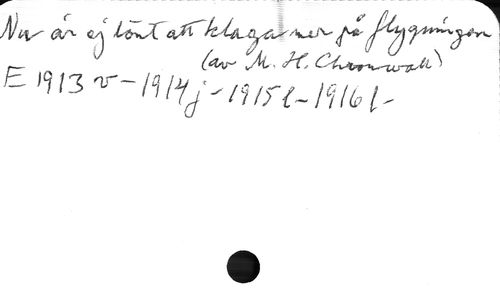 Nu är ej lönt att klaga mer på flygningen
(av M. H. Chronwall)
E 1913 v – 1914 j – 1915 l – 1916 l –